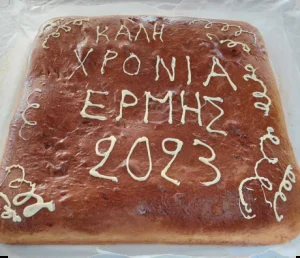 ΚΑΛΗ
ΧΡΟΝΙΑ
ΕΡΜΗΣ
2023